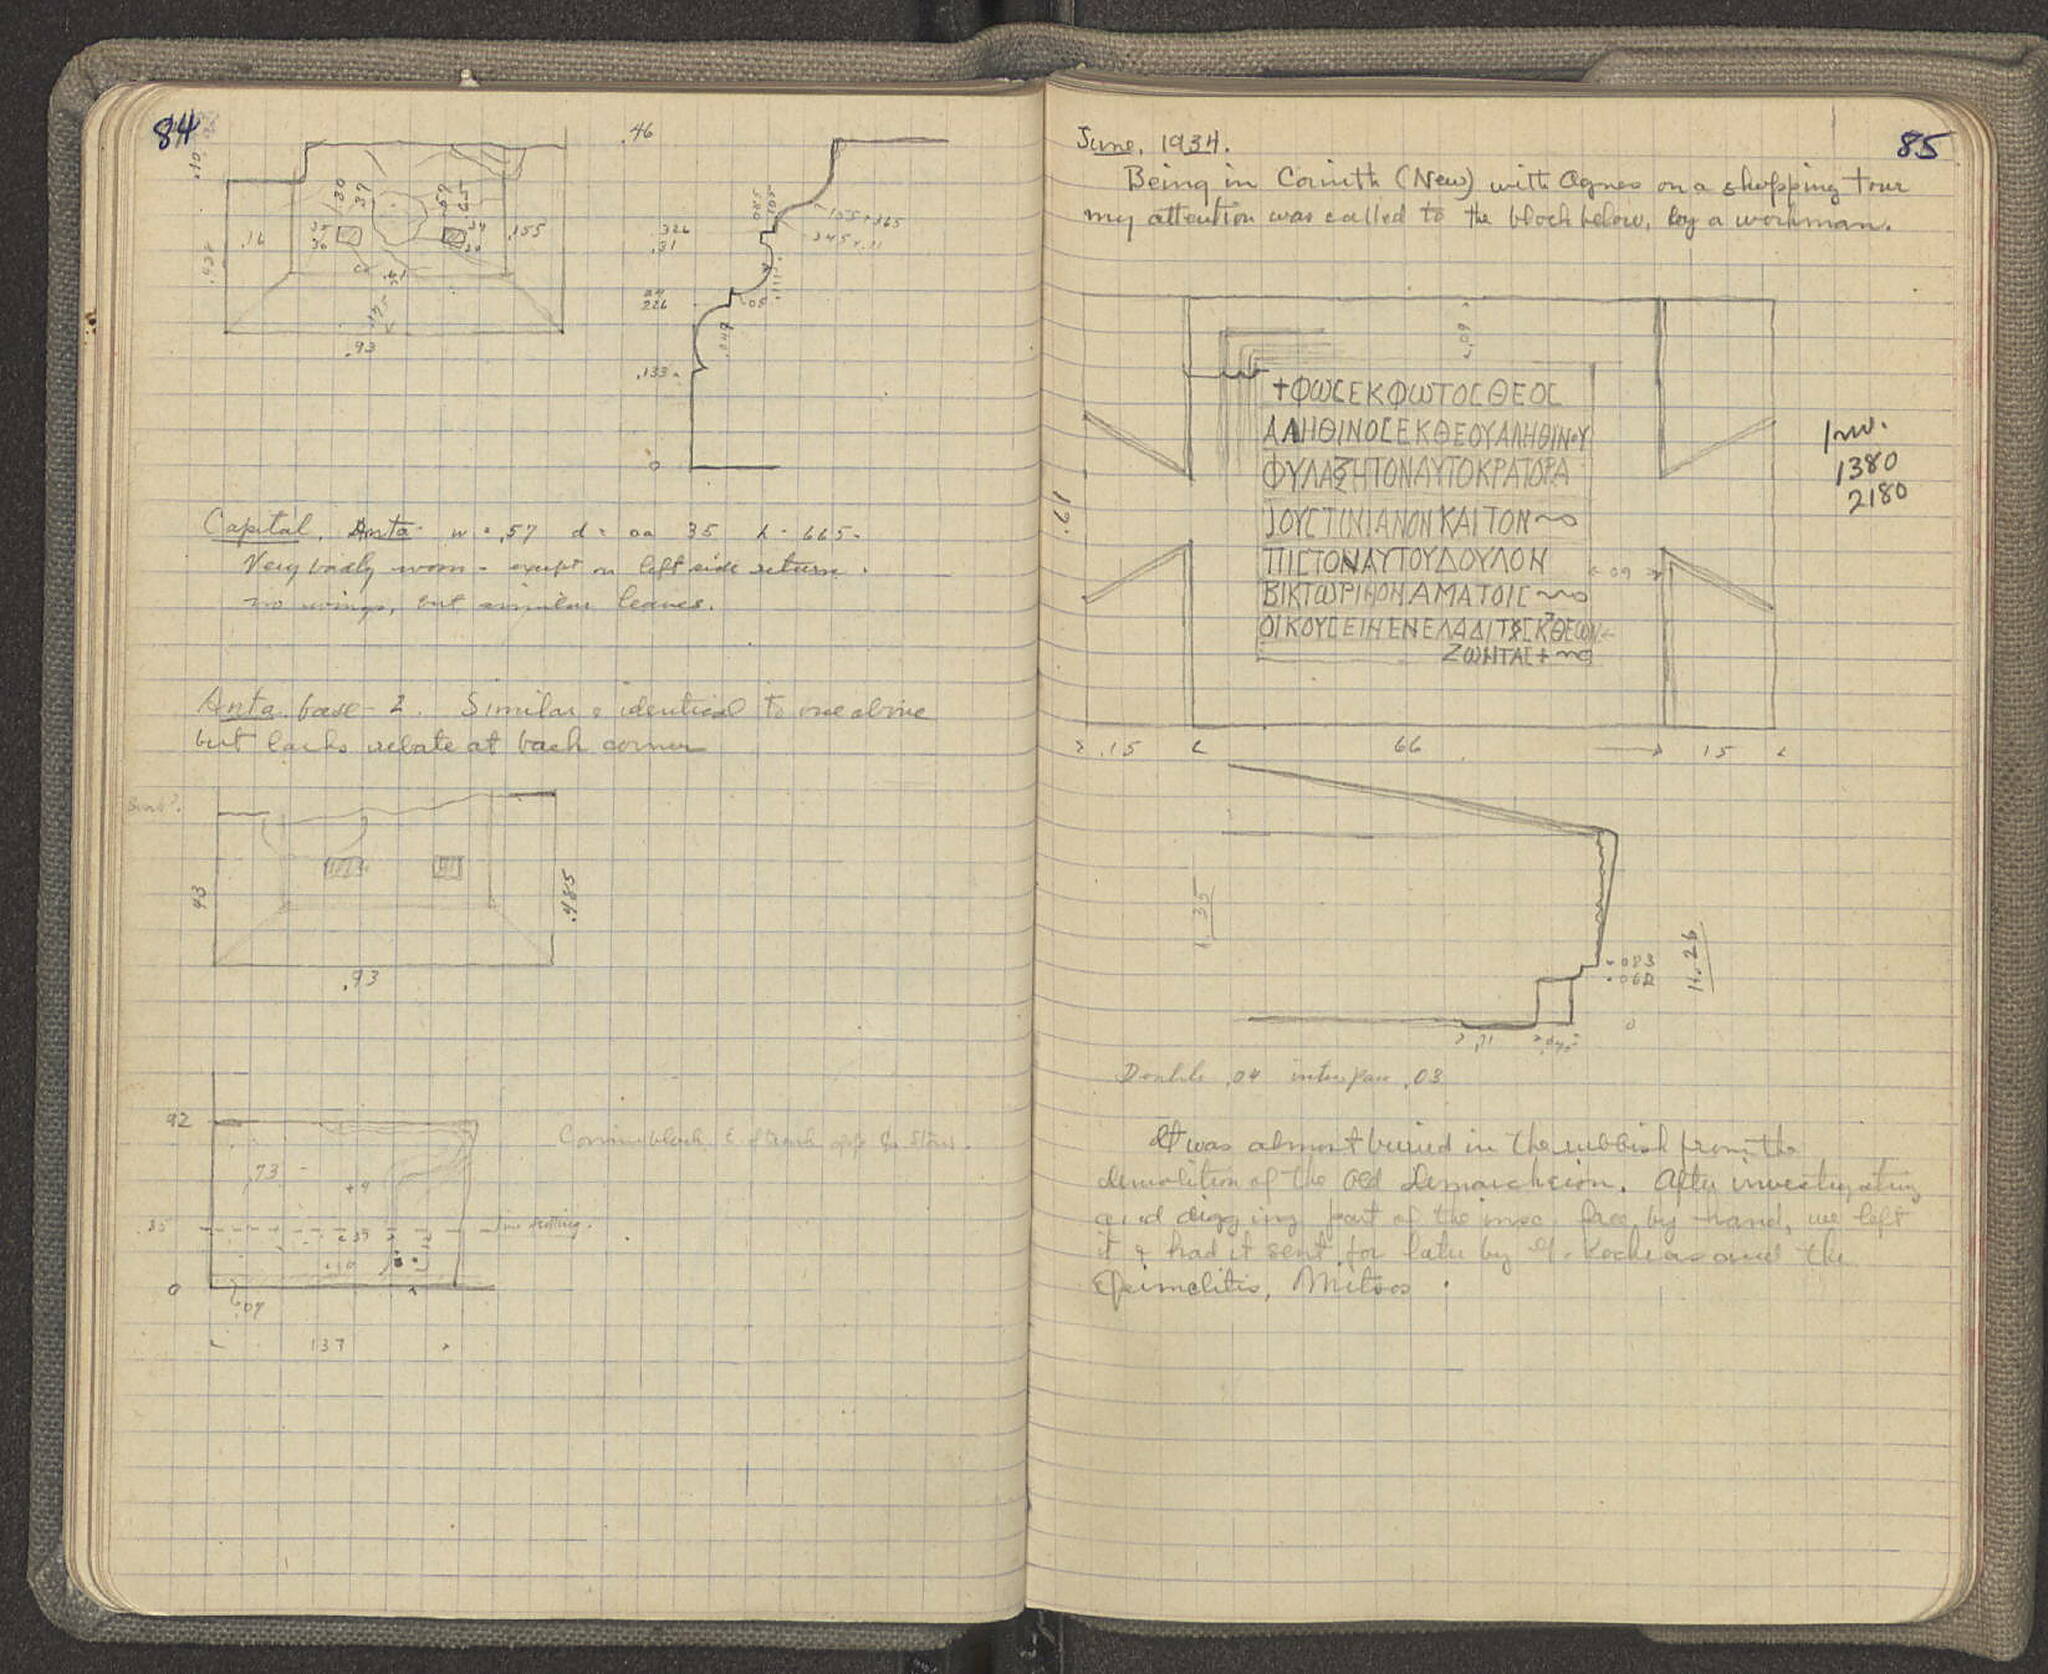 84
.46
.10
.30
.37
.57
.65
.16
.155
.93
.085
.105
.326
.31
.226
.05
.047
.133
0
Capital. Anta w = .57 d = 35 h = 665.
Very badly worn - except on left side return.
no wings, but similar leaves.
Anta base - 2. Similar & identical to one above
but lacks rebate at back corner
43
.485
.93
92
.73
35
0
.07
137
85
June, 1934.
Being in Corinth (New) with Agnes on a shopping tour
my attention was called to the block below, by a workman.
.09
+ΦѠϹΕΚΦѠΤΟϹΘΕΟϹ
ΑΛΗΘΙΝΟϹΕΚΘΕΟΥΑΛΗΘΙΝΟΥ
ΦΥΛΑΞΗΤΟΝΑΥΤΟΚΡΑΤΟΡΑ
ΙΟΥϹΤΙΝΙΑΝΟΝΚΑΙΤΟΝ
ΠΙϹΤΟΝΑΥΤΟΥΔΟΥΛΟΝ
ΒΙΚΤѠΡΙΝΟΝΑΜΑΤΟΙϹ
ΟΙΚΟΥϹΕΙΝΕΝΕΛΑΔΙ
ΖѠΝΤΑϹ+
Inv.
1380
2180
.61
.09
.15
66
15
H. 35
.083
.062
0
H. 26
.71
Double .04 interspace .03
It was almost buried in the rubbish from the
demolition of the old Demarcheion. After investigating
and digging part of the insc. free by hand, we left
it & had it sent for later by and the
Epimelitis, Mitsos.